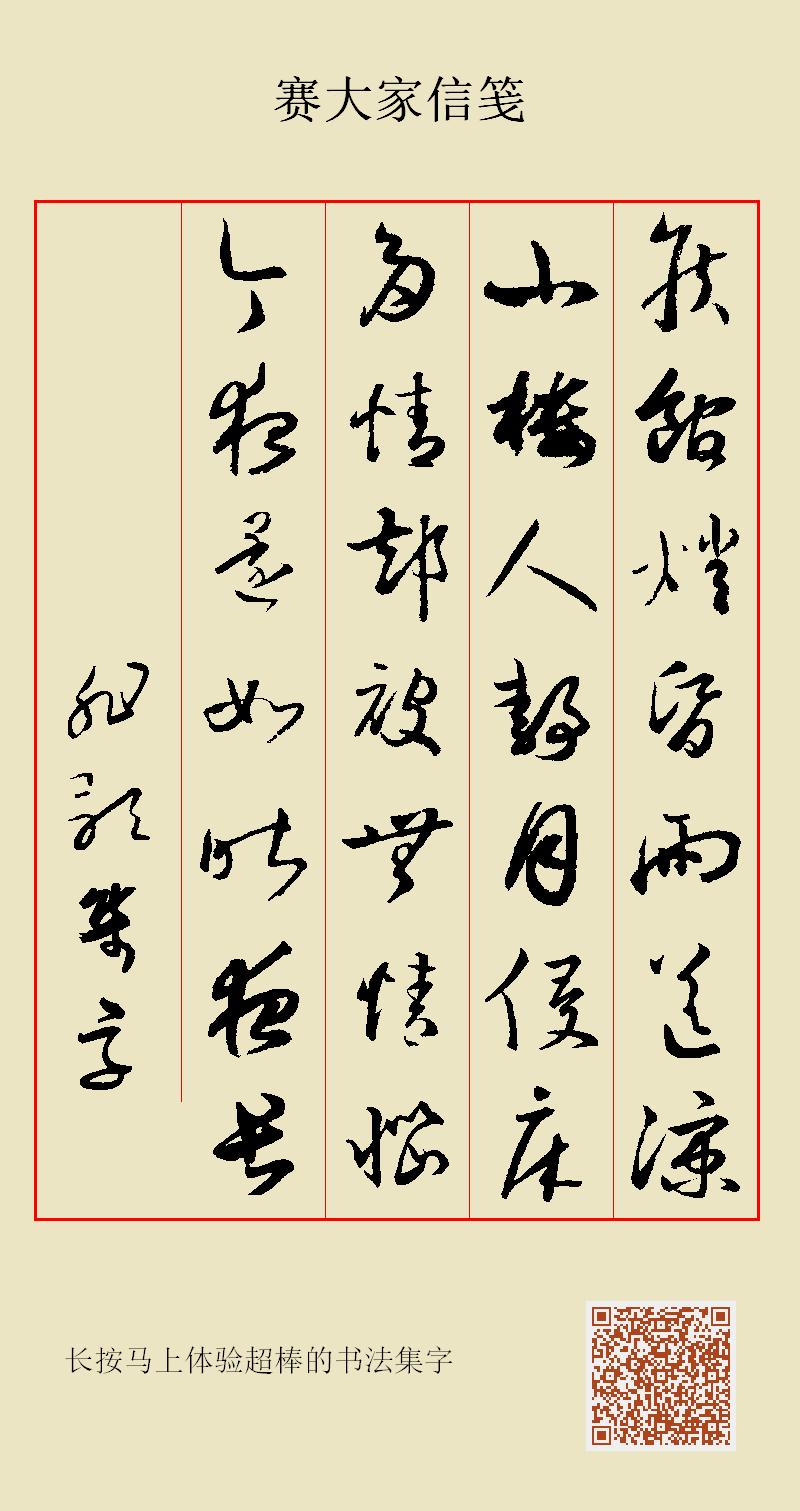 赛大家信笺
候館燈昏雨送涼
小樓人靜月侵床
多情却被無情惱
今夜還如昨夜長
集字
长按马上体验超棒的书法集字